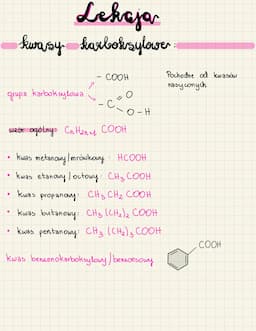 Lekcja
kwasy karboksylowe:
grupa karboksylowa
- COOH
- C
O
O - H
Pochodne od kwasów
nasyconych
wzór ogólny: CnH2n+1 COOH
• kwas metanowy/mrówkowy: HCOOH
• kwas etanowy/octowy: CH3 COOH
• kwas propanowy: CH3 CH2 COOH
• kwas butanowy: CH3 (CH2)2 COOH
• kwas pentanowy: CH3 (CH2)3 COOH
kwas benzenokarboksylowy/benzoesowy
COOH